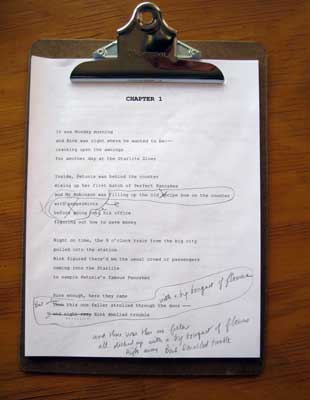 CHAPTER 1
It was Monday morning
and Rink was right where he wanted to be--
cranking open the awnings
for another day at the Starlite Diner
Inside, Petunia was behind the counter
mixing up her first batch of Perfect Pancakes
and Mr Robinson was filling up the old recipe box on the counter
with peppermints
before going into his office
figuring out how to save money
Right on time, the 9 o'clock train from the big city
pulled into the station
Rink figured there'd be the usual crowd of passengers
coming into the Starlite
to sample Petunia's famous Pancakes
Sure enough, here they came
with a big bouquet of flowers
But then this one feller strolled through the door
and right away Rink smelled trouble
and there was this one feller
all decked up with a big bouquet of flowers
Right away Rink smelled trouble